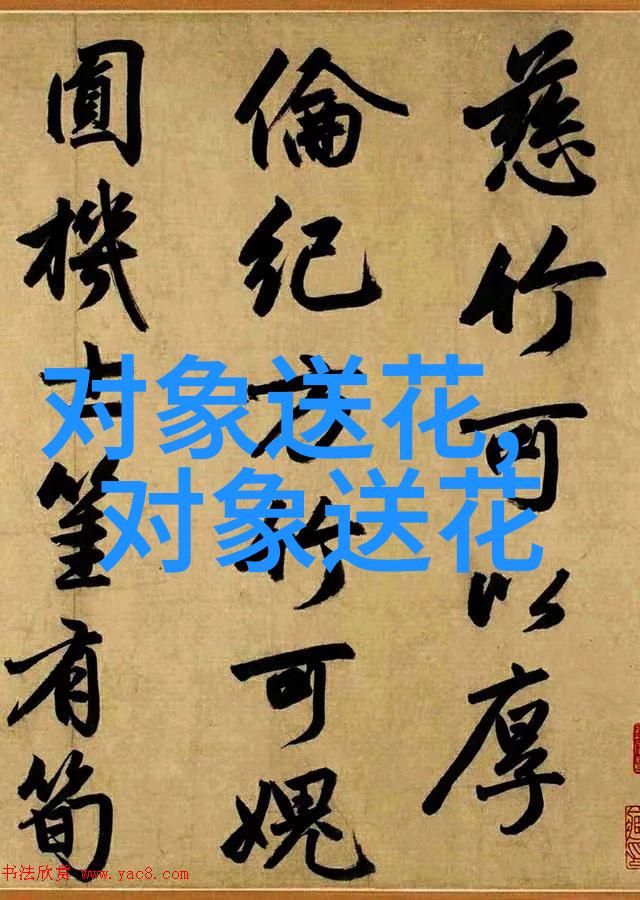 慈竹可以厚
倫紀方竹可媿
圓機士篁有筍
对象送花,
对象送花
书法欣赏 www.yac8.com